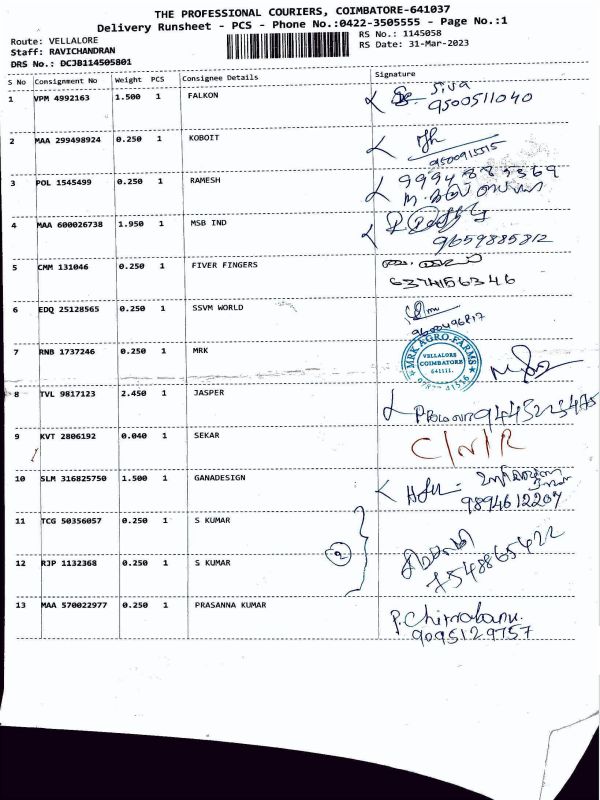 THE PROFESSIONAL COURIERS, COIMBATORE-641037
Delivery Runsheet - PCS - Phone No.:0422-3505555 - Page No.:1
Route: VELLALORE
Staff: RAVICHANDRAN
DRS No.: DCJB114505801
RS No.: 1145058
RS Date: 31-Mar-2023
S No Consignment No Weight PCS Consignee Details Signature
1 VPM 4992163 1.500 1 FALKON
Siva
9500511040
2 MAA 299498924 0.250 1 KOBOIT
9500915515
3 POL 1545499 0.250 1 RAMESH
9994885369
4 MAA 600026738 1.950 1 MSB IND
9659885812
5 CMM 131046 0.250 1 FIVER FINGERS
6374156346
6 EDQ 25128565 0.250 1 SSVM WORLD
7 RNB 1737246 0.250 1 MRK
MRK AGRO FARMS
VELLALORE
COIMBATORE
641111.
8 TVL 9817123 2.450 1 JASPER
9445225475
9 KVT 2806192 0.040 1 SEKAR
C/N/R
10 SLM 316825750 1.500 1 GANADESIGN
9894612207
11 TCG 50356057 0.250 1 S KUMAR
12 RJP 1132368 0.250 1 S KUMAR
2
7548865422
13 MAA 570022977 0.250 1 PRASANNA KUMAR
P. Chinnabanu.
9095129757